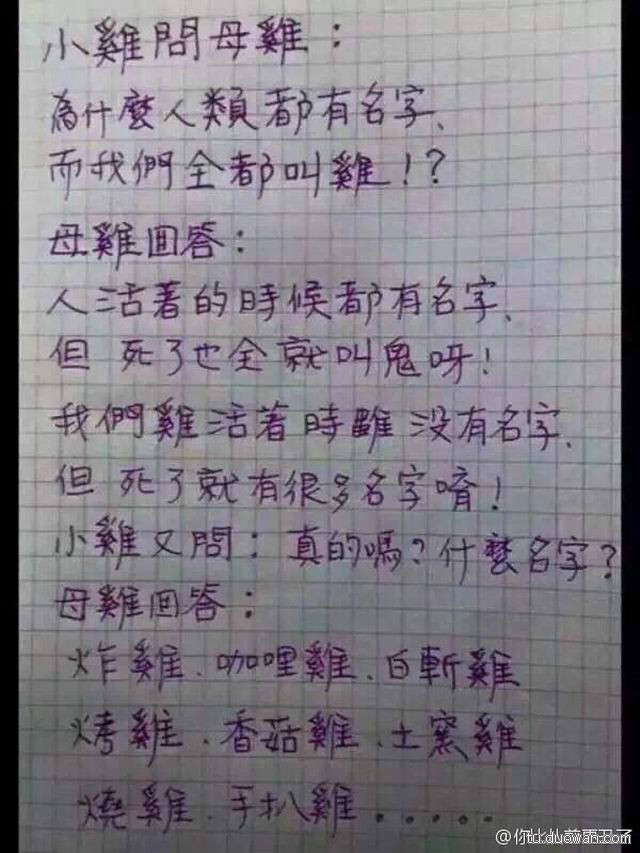 小雞問母雞：
為什麼人類都有名字、
而我們全都叫雞！？
母雞回答：
人活著的時候都有名字、
但死了也全就叫鬼呀！
我們雞活著時雖沒有名字、
但死了就有很多名字唷！
小雞又問：真的嗎？什麼名字？
母雞回答：
炸雞．咖哩雞．白斬雞
烤雞．香菇雞．土窯雞
燒雞．手扒雞．．．．．
tu.duowan.com